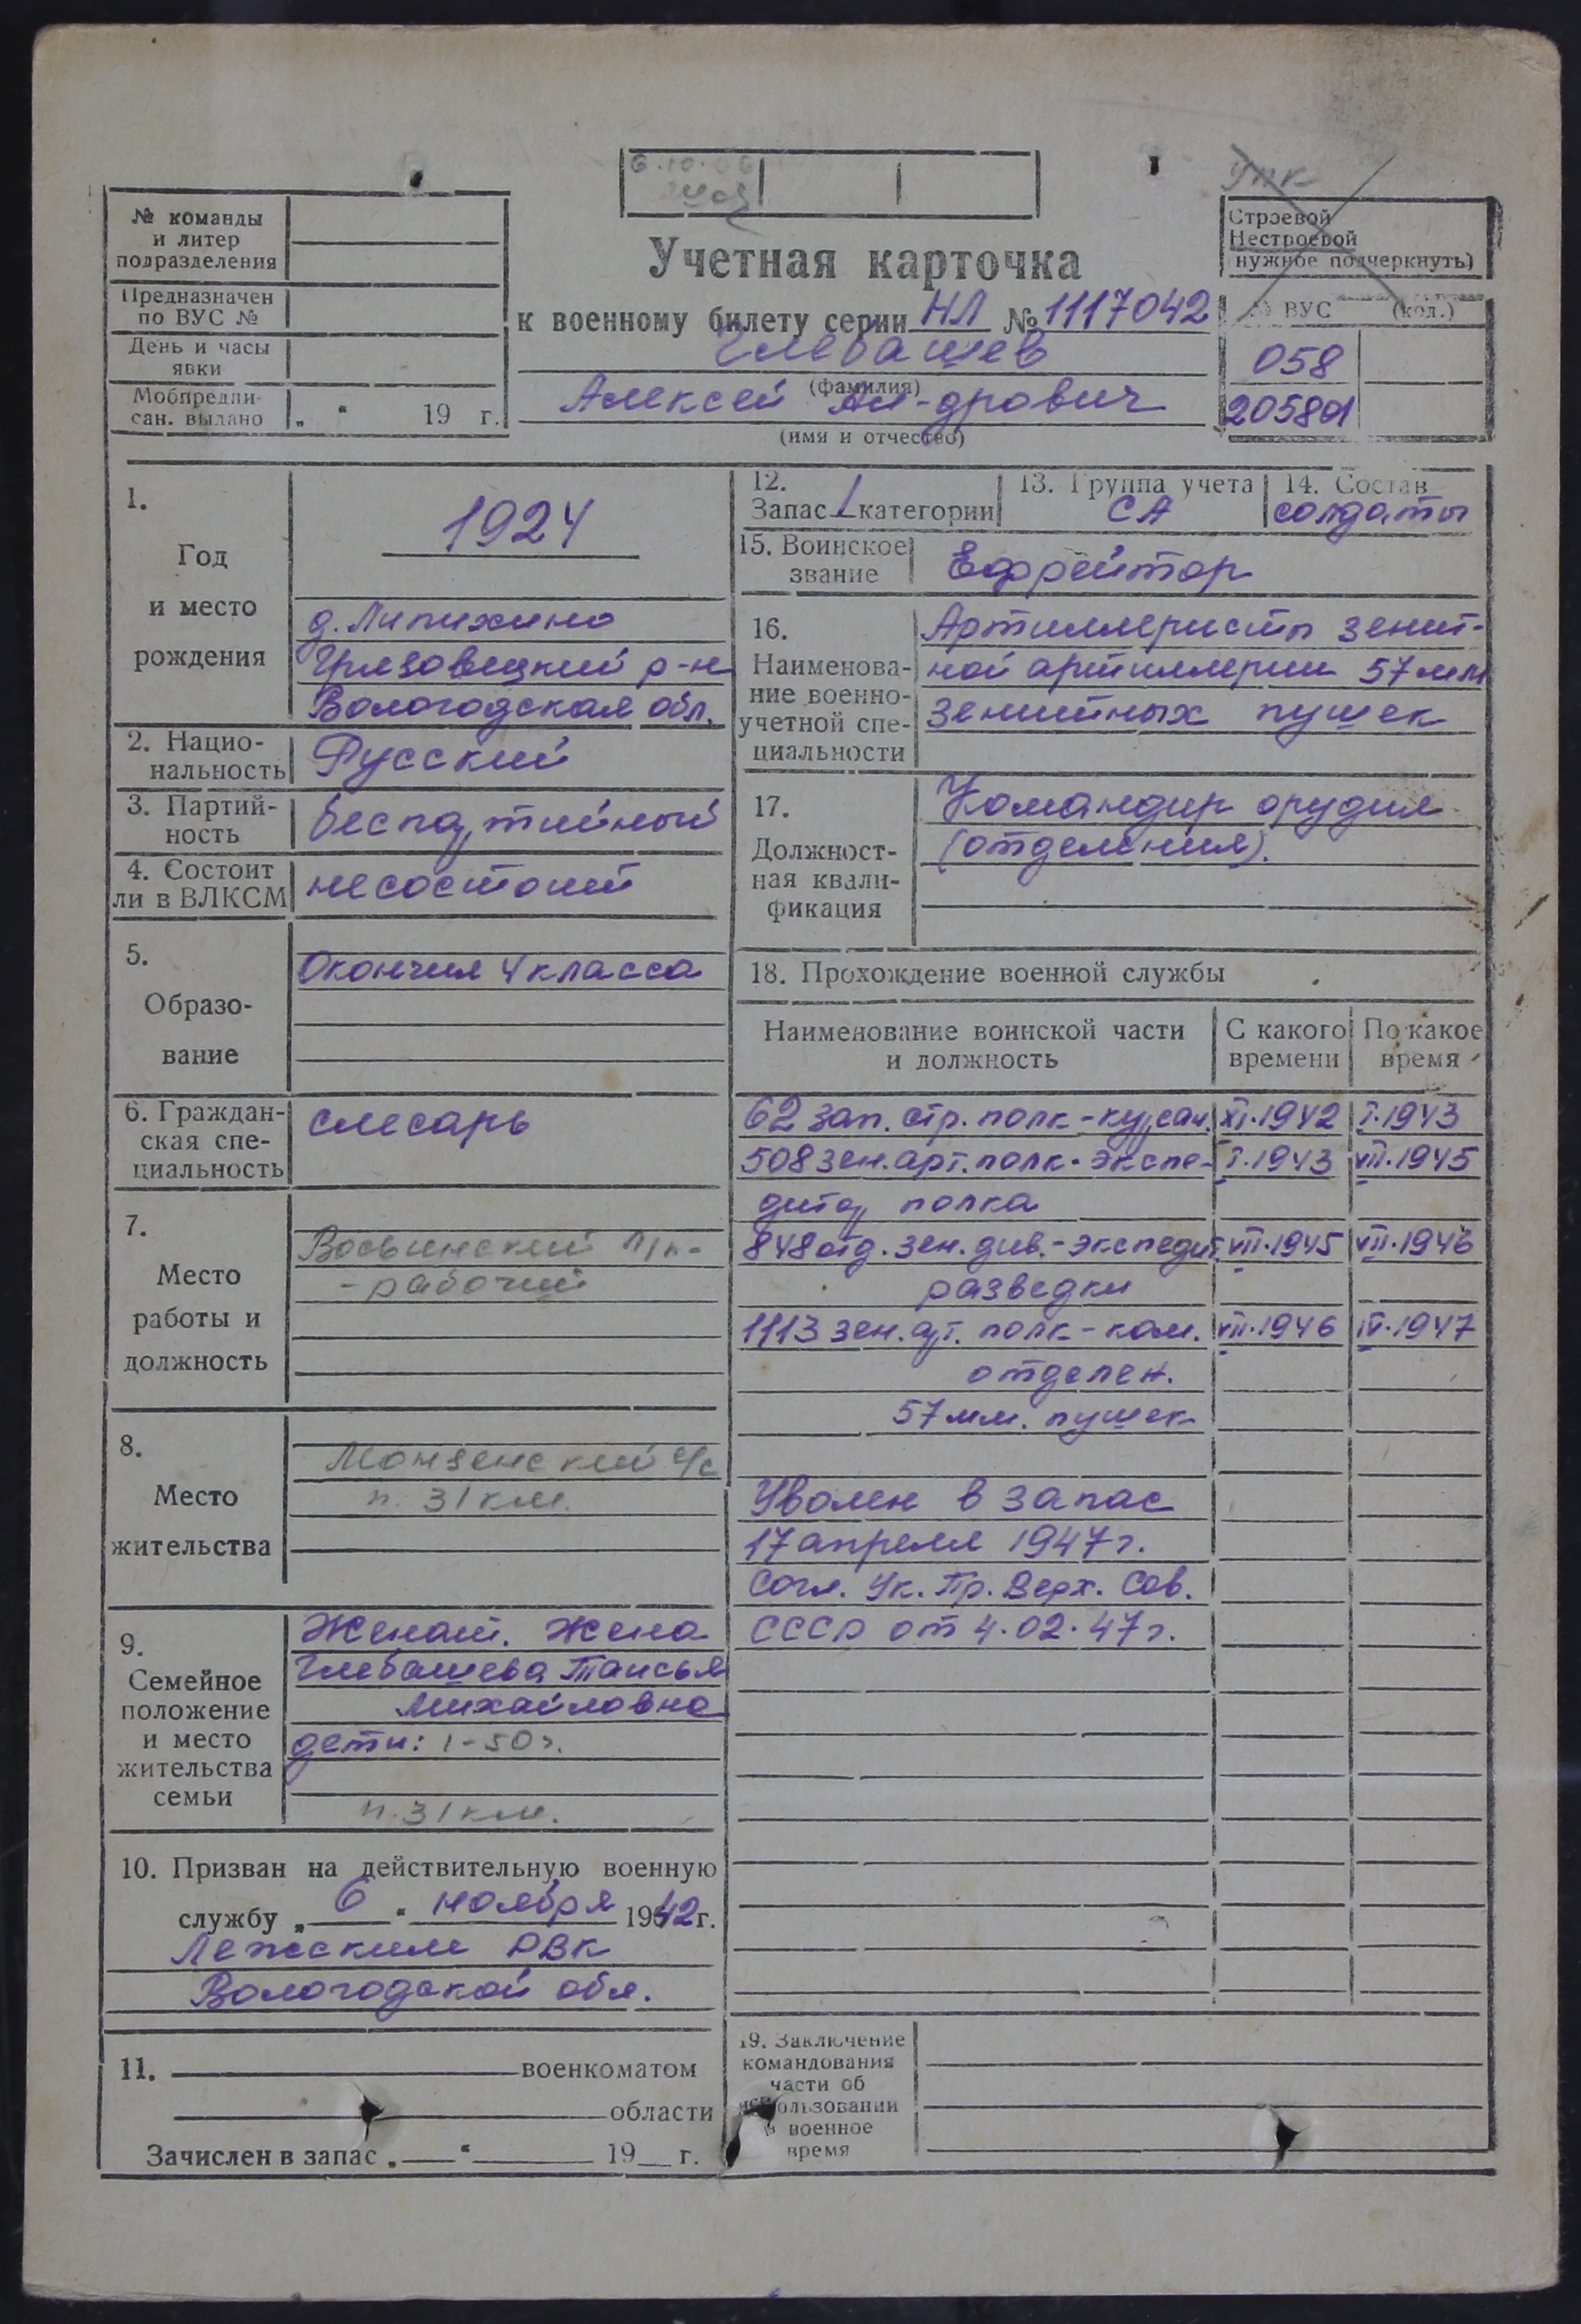 6.10.
Упк
№ команды
и литер
подразделения
Предназначен
по ВУС №
День и часы
явки
Мобпредпи-
сан. выдано „ “ 19 г.
Учетная карточка
к военному билету серии НЛ № 1117042
Глебашев
(фамилия)
Алексей Ал-дрович
(имя и отчество)
Строевой
Нестроевой
нужное подчеркнуть)
№ ВУС (код.)
058
205801
1.
Год
и место
рождения
1924
д. Липихино
Грязовецкий р-н
Вологодская обл.
2. Нацио-
нальность
Русский
3. Партий-
ность
беспартийный
4. Состоит
ли в ВЛКСМ
не состоит
5.
Образо-
вание
Окончил 4 класса
6. Граждан-
ская спе-
циальность
слесарь
7.
Место
работы и
должность
л/п-
- рабочий
8.
Место
жительства
Монзенский с/с
п. 31 км.
9.
Семейное
положение
и место
жительства
семьи
Женат. Жена
Глебашева Таисья
Михайловна
дети: 1-50г.
п. 31 км.
10. Призван на действительную военную
службу „ 6 “ ноября 1942 г.
Лежским РВК
Вологодской обл.
11. военкоматом
области
Зачислен в запас „ “ 19 г.
12.
Запас 1 категории
13. Группа учета
СА
14. Состав
солдаты
15. Воинское
звание
Ефрейтор
16.
Наименова-
ние военно-
учетной спе-
циальности
Артиллеристы зенит-
ной артиллерии 57 мм
зенитных пушек
17.
Должност-
ная квали-
фикация
Командир орудия
(отделения).
18. Прохождение военной службы
Наименование воинской части
и должность
С какого
времени
По какое
время
62 зап. стр. полк - курсан. XI.1942 I.1943
508 зен. арт. полк - экспе- I.1943 VII.1945
дитор полка
848 отд. зен. див. - экспедит. VII.1945 VII.1946
разведки
1113 зен. арт. полк - ком. VII.1946 IV.1947
отделен.
57 мм. пушек
Уволен в запас
17 апреля 1947 г.
Согл. Ук. Пр. Верх. Сов.
СССР от 4.02.47 г.
19. Заключение
командования
части об
использовании
в военное
время